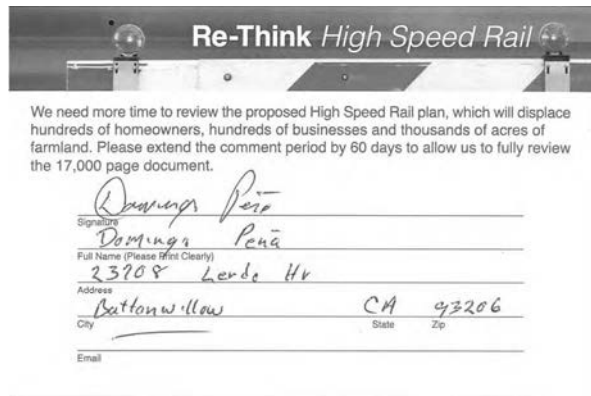 Re-Think High Speed Rail
We need more time to review the proposed High Speed Rail plan, which will displace
hundreds of homeowners, hundreds of businesses and thousands of acres of
farmland. Please extend the comment period by 60 days to allow us to fully review
the 17,000 page document.
Domingo Peña
Signature
Domingo Peña
Full Name (Please Print Clearly)
23208 Lerdo Hv
Address
Buttonwillow CA 93206
City State Zip
Email